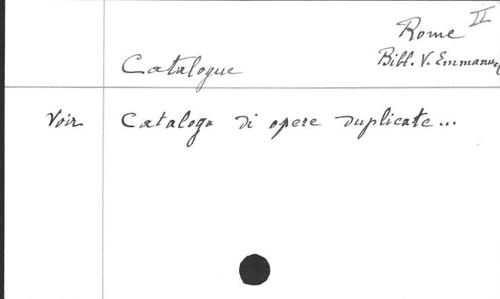 Rome II
Bibl. V. Emmanuel
Catalogue
Voir Catalogo di opere duplicate...